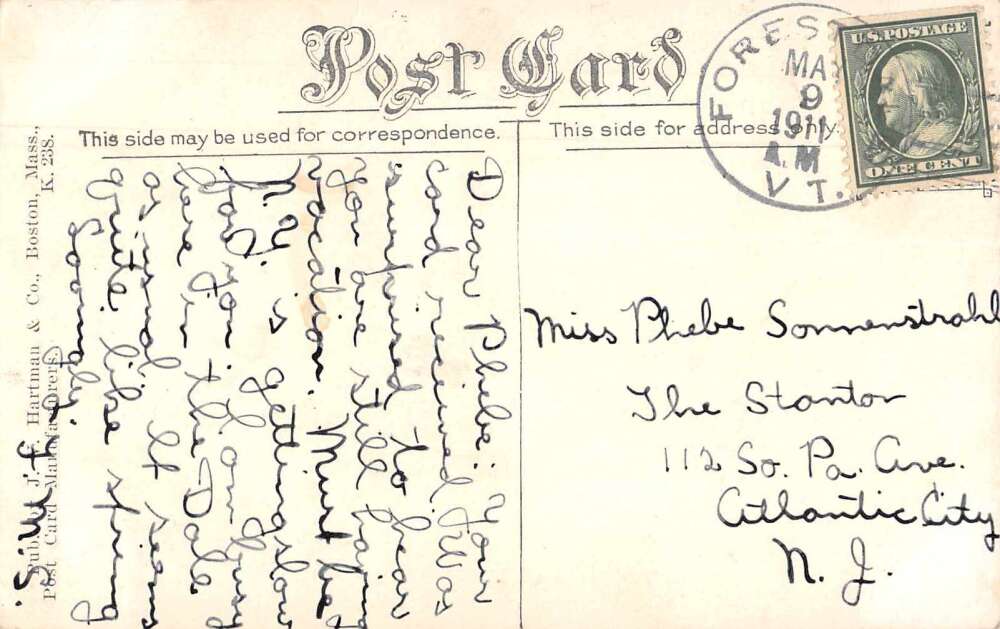 Post Card
This side may be used for correspondence.
This side for address only.
FOREST
MA
9
1911
A.M
VT.
U.S. POSTAGE
ONE CENT
Dear Phebe:- Your
card received. Was
surprised to hear
you are still having
vacation. Must be
N.Y. is getting slow
for you. I am busy
here in the Dale
as usual. It seems
quite like spring
Soongly,
S.M.F.
Miss Phebe Sonnenstrahl
The Stanton
112 So. Pa. Ave.
Atlantic City
N. J.
Publ. by J. F. Hartman & Co., Boston, Mass.,
Post Card Manufacturers. K. 238.